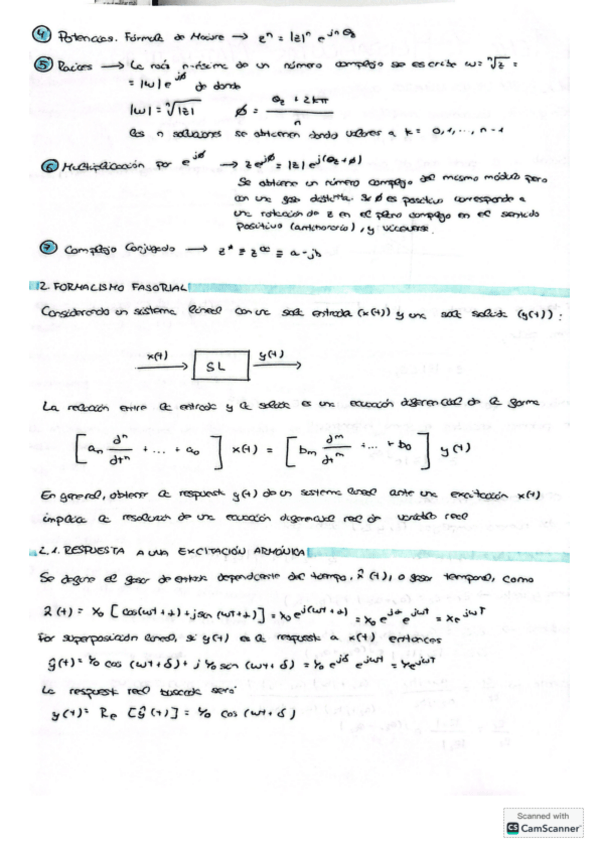 ④ Potencias. Fórmula de Moivre → zⁿ = |z|ⁿ e^{jnθz}
⑤ Raíces → La raíz n-ésima de un número complejo se escribe w = ⁿ√z =
= |w| e^{jø} de donde
|w| = ⁿ√|z|   ø = (θz + 2kπ)/n
Las n soluciones se obtienen dando valores a k = 0, 1, ..., n-1
⑥ Multiplicación por e^{jø} → z e^{jø} = |z| e^{j(θz + ø)}
Se obtiene un número complejo del mismo módulo pero
con una fase distinta. Si ø es positivo corresponde a
una rotación de z en el plano complejo en el sentido
positivo (antihorario), y viceversa.
⑦ Complejo Conjugado → z* ≡ z^{cc} ≡ a - jb
2. FORMALISMO FASORIAL
Considerando un sistema lineal con una sola entrada (x(t)) y una sola salida (y(t)):
x(t) SL y(t)
La relación entre la entrada y la salida es una ecuación diferencial de la forma
[an dⁿ/dtⁿ + ... + a0] x(t) = [bm d^m/dt^m + ... + b0] y(t)
En general, obtener la respuesta y(t) de un sistema lineal ante una excitación x(t)
implica la resolución de una ecuación diferencial real de variable real
2.1. RESPUESTA A UNA EXCITACIÓN ARMÓNICA
Se define el fasor de entrada dependiente del tiempo, x̂(t), o fasor temporal, como
x̂(t) = X0 [cos(wt + α) + j sen(wt + α)] = X0 e^{j(wt + α)} = X0 e^{jα} e^{jwt} = X e^{jwt}
Por superposición lineal, si y(t) es la respuesta a x(t) entonces
ŷ(t) = Y0 cos(wt + δ) + j Y0 sen(wt + δ) = Y0 e^{jδ} e^{jwt} = Y e^{jwt}
La respuesta real buscada será:
y(t) = Re [ŷ(t)] = Y0 cos(wt + δ)
Scanned with
CS CamScanner